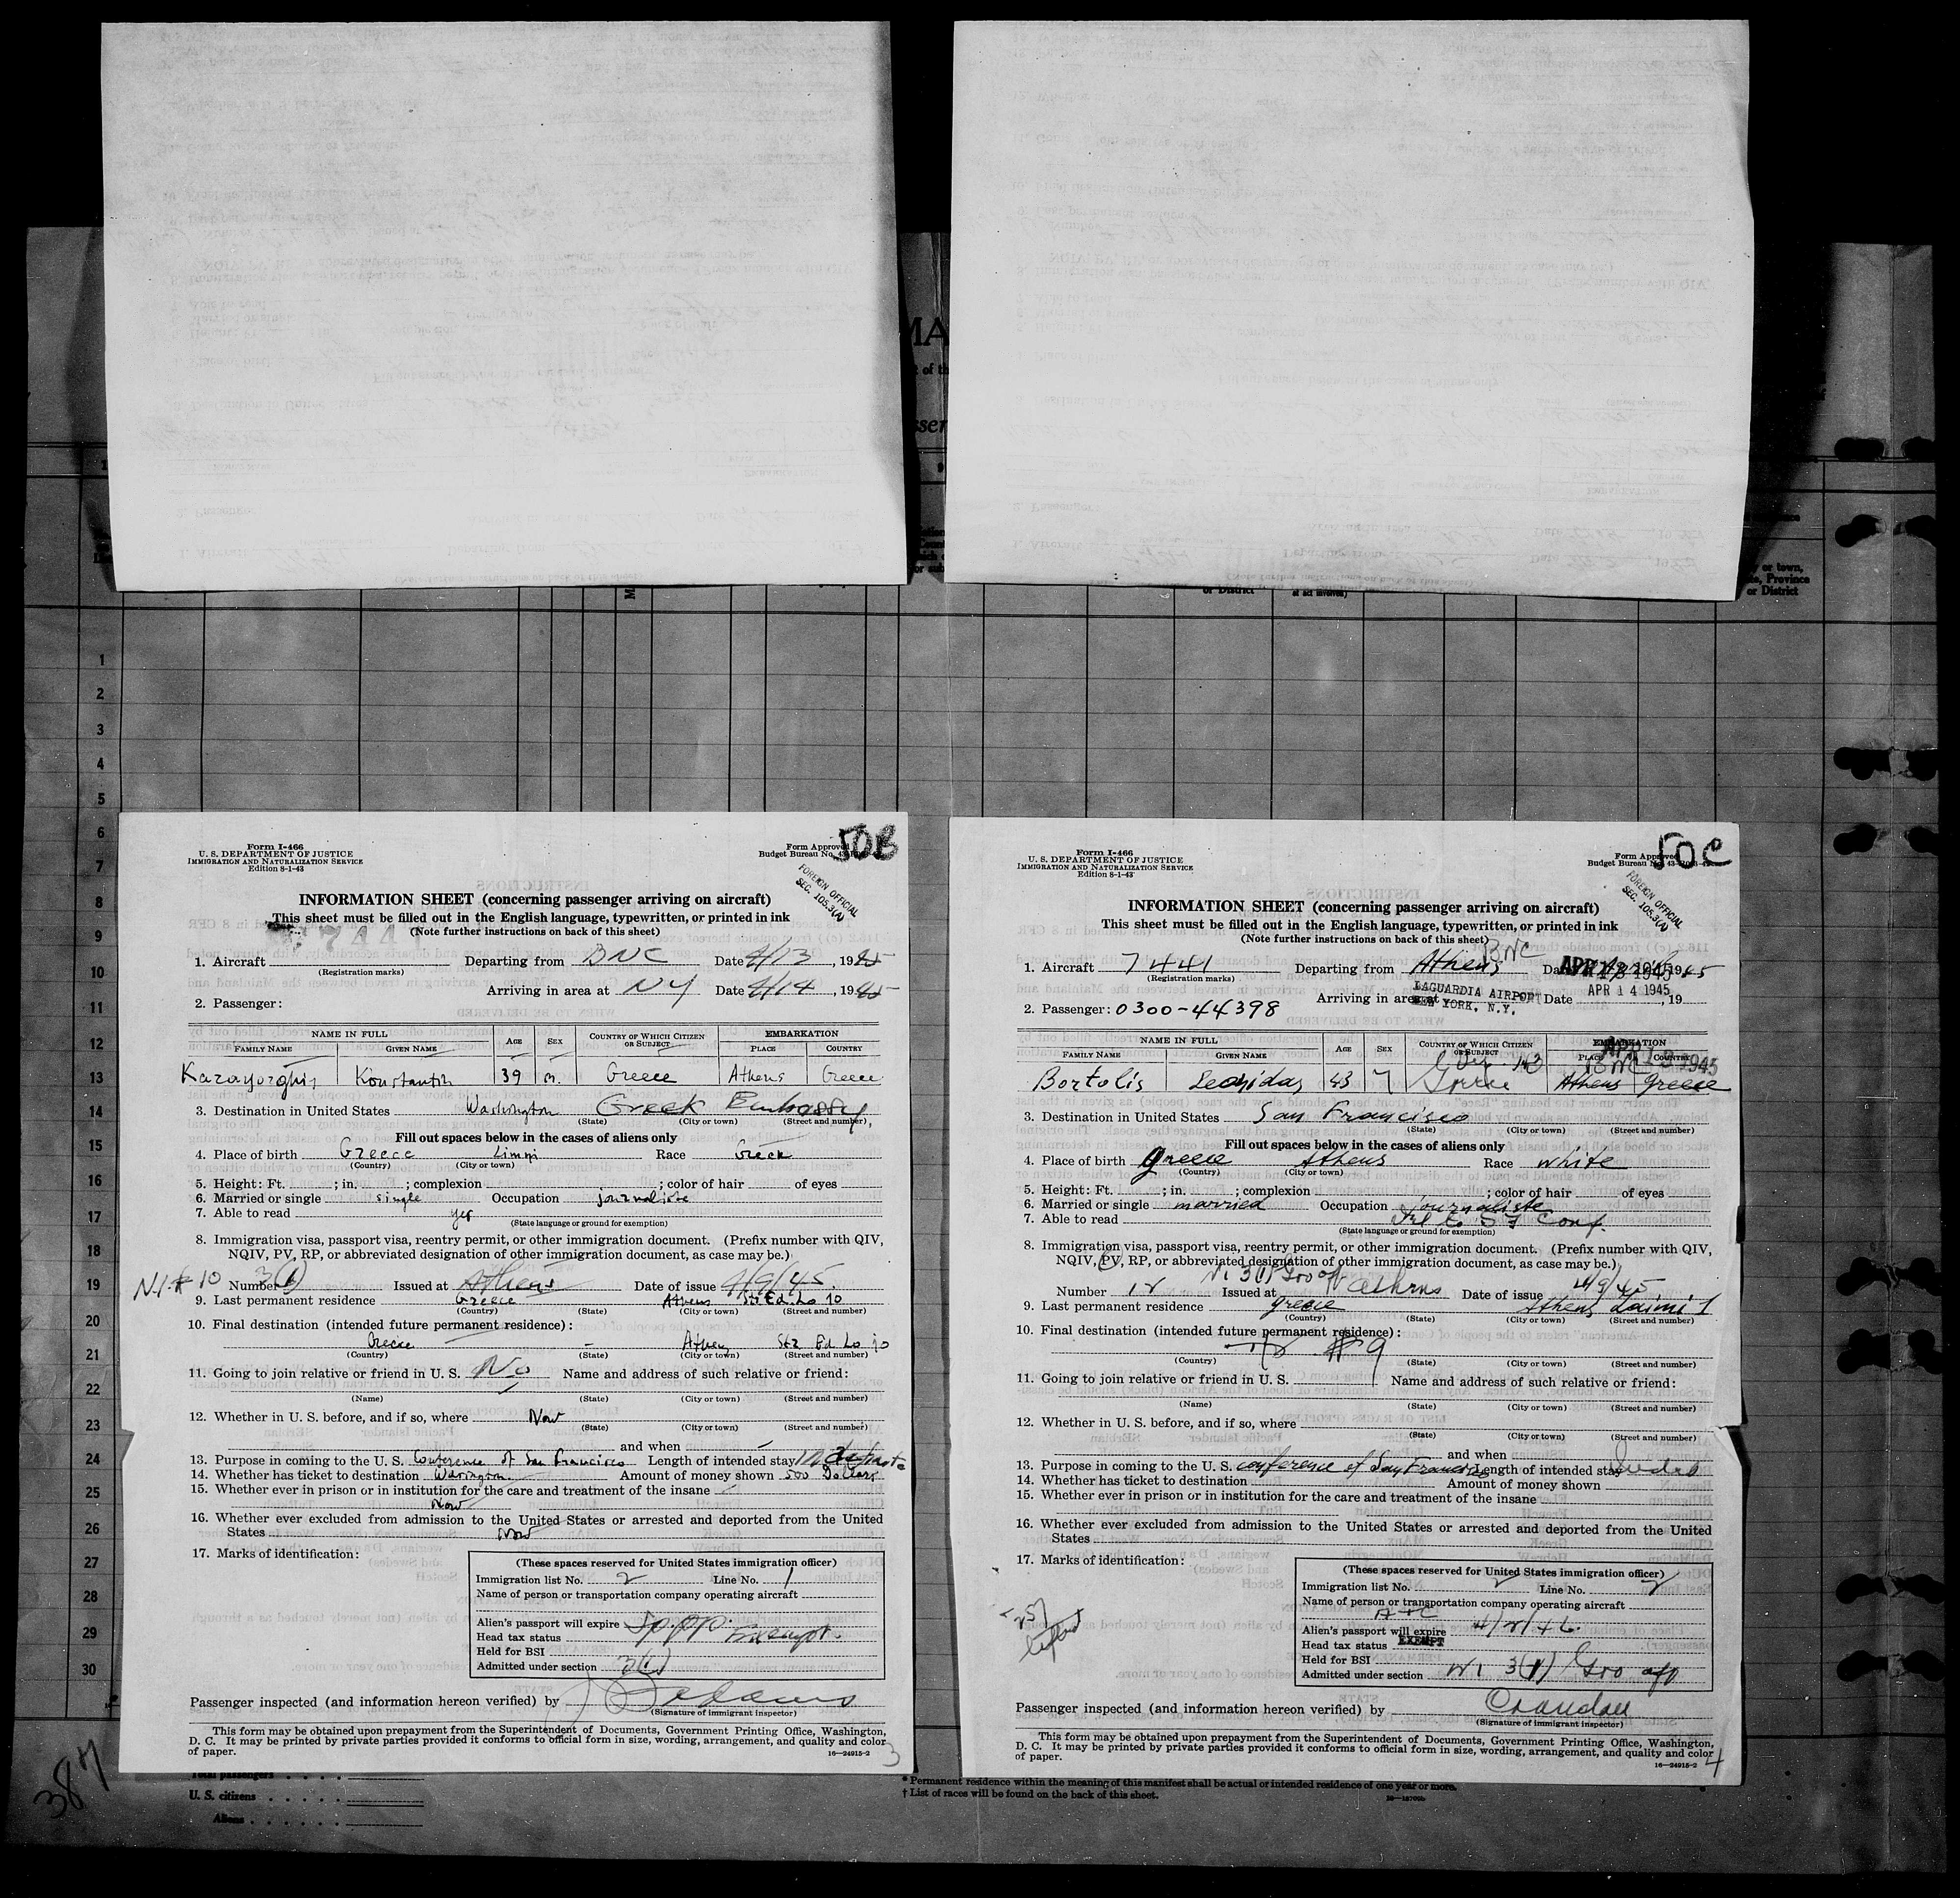 50B
Form I-466
U. S. DEPARTMENT OF JUSTICE
IMMIGRATION AND NATURALIZATION SERVICE
Edition 8-1-43
Form Approved
Budget Bureau No.
FOREIGN OFFICIAL
SEC. 105.3(A)
INFORMATION SHEET (concerning passenger arriving on aircraft)
This sheet must be filled out in the English language, typewritten, or printed in ink
(Note further instructions on back of this sheet)
7441
1. Aircraft Departing from BNC Date 4/13, 1945
(Registration marks)
Arriving in area at NY Date 4/14, 1945
2. Passenger:
NAME IN FULL AGE SEX COUNTRY OF WHICH CITIZEN OR SUBJECT EMBARKATION
FAMILY NAME GIVEN NAME PLACE COUNTRY
39 m. Greece Athens Greece
3. Destination in United States Washington Greek Embassy,
(State) (City or town) (Street and number)
Fill out spaces below in the cases of aliens only
4. Place of birth Greece Limni Race Greek
(Country) (City or town)
5. Height: Ft. ; in. ; complexion ; color of hair of eyes
6. Married or single single Occupation journaliste
7. Able to read yes
(State language or ground for exemption)
8. Immigration visa, passport visa, reentry permit, or other immigration document. (Prefix number with QIV,
NQIV, PV, RP, or abbreviated designation of other immigration document, as case may be.)
N.I. # 10 Number 3(1) Issued at Athens Date of issue 4/9/45.
9. Last permanent residence Greece Athens Str Ed. Lo 10
(Country) (State) (City or town) (Street and number)
10. Final destination (intended future permanent residence):
Greece - Athen Str Ed Lo 10
(Country) (State) (City or town) (Street and number)
11. Going to join relative or friend in U. S. No Name and address of such relative or friend:
(Name) (State) (City or town) (Street and number)
12. Whether in U. S. before, and if so, where Now
(State) (City or town) (Street and number)
and when
13. Purpose in coming to the U. S. Conference of San Francisco Length of intended stay
14. Whether has ticket to destination Amount of money shown 500 Dollars
15. Whether ever in prison or in institution for the care and treatment of the insane
Now
16. Whether ever excluded from admission to the United States or arrested and deported from the United
States Now
17. Marks of identification:
(These spaces reserved for United States immigration officer)
Immigration list No. 2 Line No. 1
Name of person or transportation company operating aircraft
Alien's passport will expire
Head tax status Exempt.
Held for BSI
Admitted under section 3(1)
Passenger inspected (and information hereon verified) by
(Signature of immigrant inspector)
This form may be obtained upon prepayment from the Superintendent of Documents, Government Printing Office, Washington,
D. C. It may be printed by private parties provided it conforms to official form in size, wording, arrangement, and quality and color
of paper.
16—24915-2
3
50C
Form I-466
U. S. DEPARTMENT OF JUSTICE
IMMIGRATION AND NATURALIZATION SERVICE
Edition 8-1-43
Form Approved
Budget Bureau No.
FOREIGN OFFICIAL
SEC. 105.3(A)
INFORMATION SHEET (concerning passenger arriving on aircraft)
This sheet must be filled out in the English language, typewritten, or printed in ink
(Note further instructions on back of this sheet)
BNC
1. Aircraft 7441 Departing from Athens Date
(Registration marks)
Arriving in area at LAGUARDIA AIRPORT NEW YORK, N.Y. Date APR 14 1945, 19
2. Passenger: 0300-44398
NAME IN FULL AGE SEX COUNTRY OF WHICH CITIZEN OR SUBJECT EMBARKATION
FAMILY NAME GIVEN NAME PLACE COUNTRY
Bortolis Leonidas 43 Greece Athens Greece
3. Destination in United States San Francisco
(State) (City or town) (Street and number)
Fill out spaces below in the cases of aliens only
4. Place of birth Greece Athens Race white
(Country) (City or town)
5. Height: Ft. ; in. ; complexion ; color of hair of eyes
6. Married or single married Occupation journaliste
7. Able to read Del to S F Conf.
(State language or ground for exemption)
8. Immigration visa, passport visa, reentry permit, or other immigration document. (Prefix number with QIV,
NQIV, PV, RP, or abbreviated designation of other immigration document, as case may be.)
Number 12 Issued at Athens Date of issue 4/9/45
9. Last permanent residence Greece Athens
(Country) (State) (City or town) (Street and number)
10. Final destination (intended future permanent residence):
#9
(Country) (State) (City or town) (Street and number)
11. Going to join relative or friend in U. S. Name and address of such relative or friend:
(Name) (State) (City or town) (Street and number)
12. Whether in U. S. before, and if so, where
(State) (City or town) (Street and number)
and when
13. Purpose in coming to the U. S. conference of San Francisco Length of intended stay
14. Whether has ticket to destination Amount of money shown
15. Whether ever in prison or in institution for the care and treatment of the insane
16. Whether ever excluded from admission to the United States or arrested and deported from the United
States
17. Marks of identification:
(These spaces reserved for United States immigration officer)
Immigration list No. 2 Line No. 2
Name of person or transportation company operating aircraft
ATC
Alien's passport will expire 4/2/46.
Head tax status EXEMPT
Held for BSI
Admitted under section
Passenger inspected (and information hereon verified) by Crandall
(Signature of immigrant inspector)
This form may be obtained upon prepayment from the Superintendent of Documents, Government Printing Office, Washington,
D. C. It may be printed by private parties provided it conforms to official form in size, wording, arrangement, and quality and color
of paper.
16—24915-2
4
1
2
3
4
5
6
7
8
9
10
11
12
13
14
15
16
17
18
19
20
21
22
23
24
25
26
27
28
29
30
or town,
Province
or District
or District
Total passengers
U. S. citizens
Aliens
* Permanent residence within the meaning of this manifest shall be actual or intended residence of one year or more.
† List of races will be found on the back of this sheet.
387